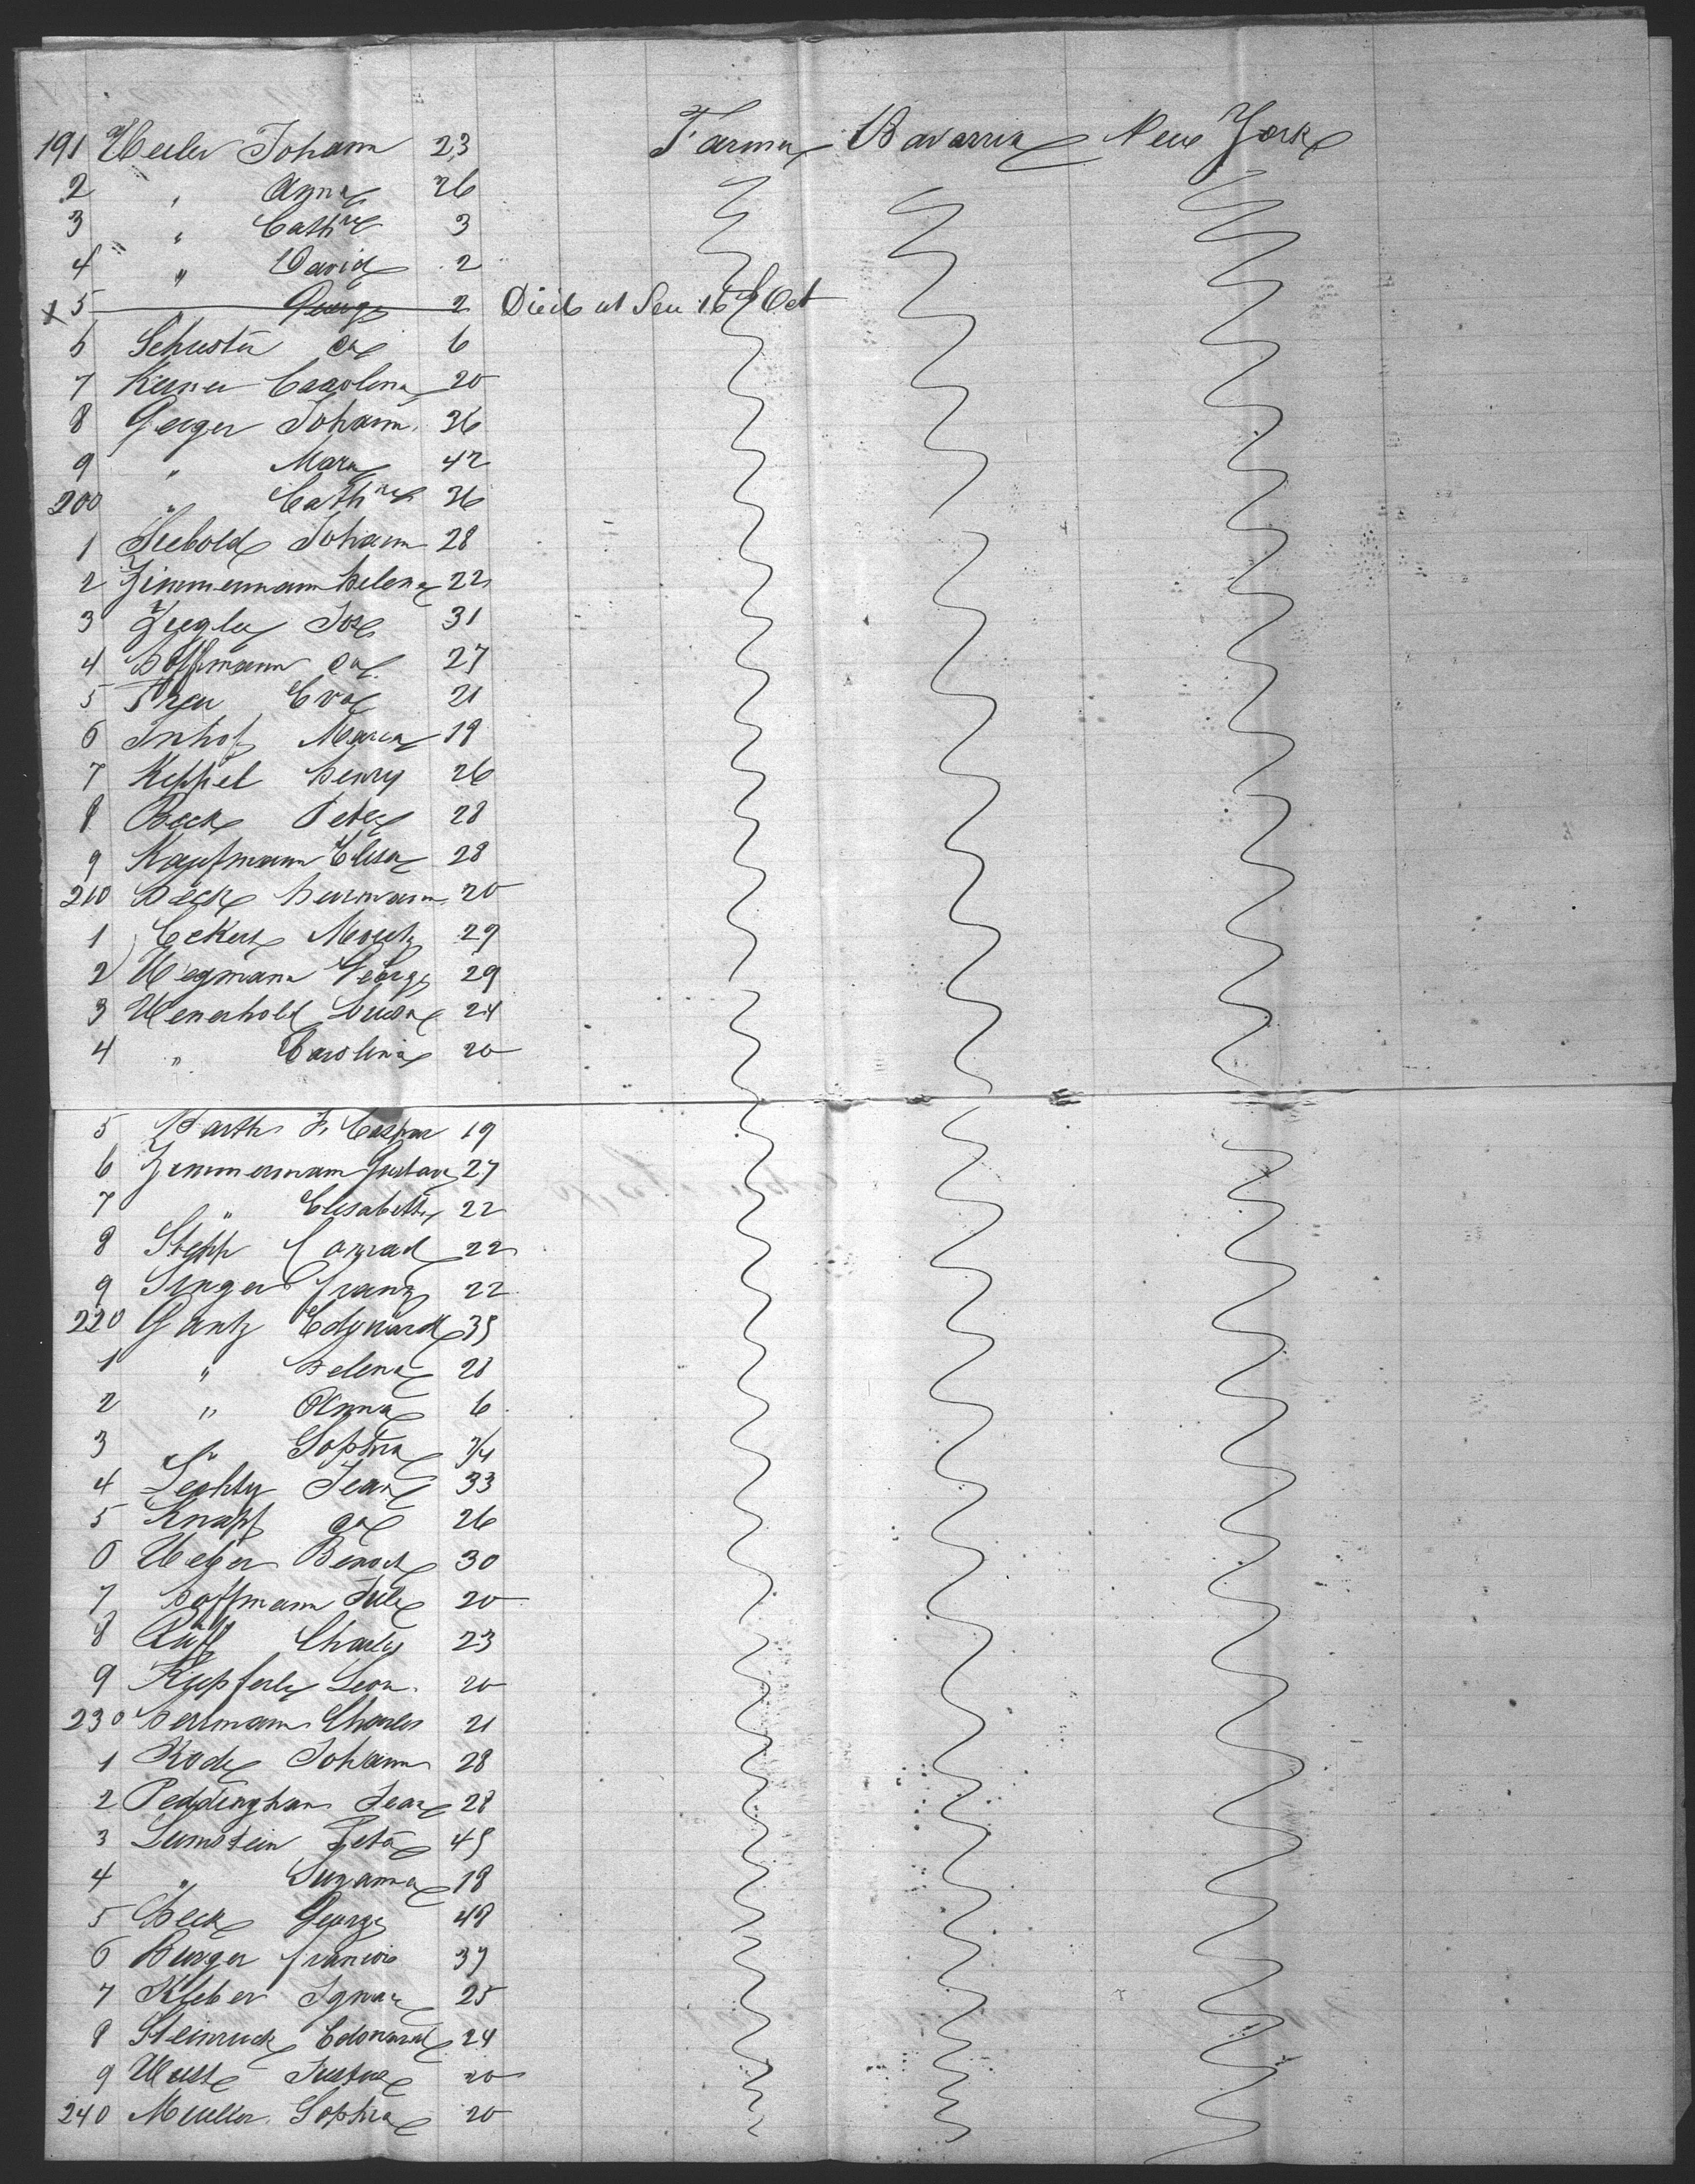 191 Weiler Johann 23 Farmer Bavaria New York
2 " Anna 26
3 " Cathne 3
4 " David 2
x 5 George 2 Died at Sea 16 Oct
6 Schuster 6
7 Carolina 20
8 Geiger Johann 36
9 " Maria 42
200 " Cathne 36
1 Seebold Johann 28
2 Zimmermann Helena 22
3 Ziegler Jos 31
4 Hoffmann 27
5 Eva 21
6 Inhof Maria 19
7 Keppel Henry 26
8 Beck Peter 28
9 Kaufmann Elisa 28
210 Beck Hermann 20
1 Eckert Moritz 29
2 Wegmann George 29
3 Wenerhold Louisa 24
4 " Carolina 20
5 Barth F. Caspar 19
6 Zimmermann Gustav 27
7 " Elisabeth 22
8 Stepp Conrad 22
9 Singer Franz 22
220 Gantz Edward 35
1 " Helena 28
2 " Anna 6
3 " Sophia 3/4
4 Lechty Jean 33
5 Knapf 26
6 Weber Benoit 30
7 Hoffmann Jule 20
8 Ruff Charles 23
9 Kupferle Leon 20
230 Charles 21
1 Rode Johann 28
2 Peddinghan Jean 28
3 Lumstein 45
4 " Suzanna 18
5 Beck George 48
6 Burger Francois 37
7 Kleber Ignaz 25
8 Steinruck Edouard 24
9 Wust 20
240 Muller Sophia 20